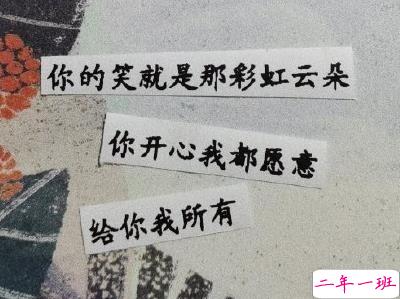 你的笑就是那彩虹云朵
你开心我都愿意
给你我所有
二年一班